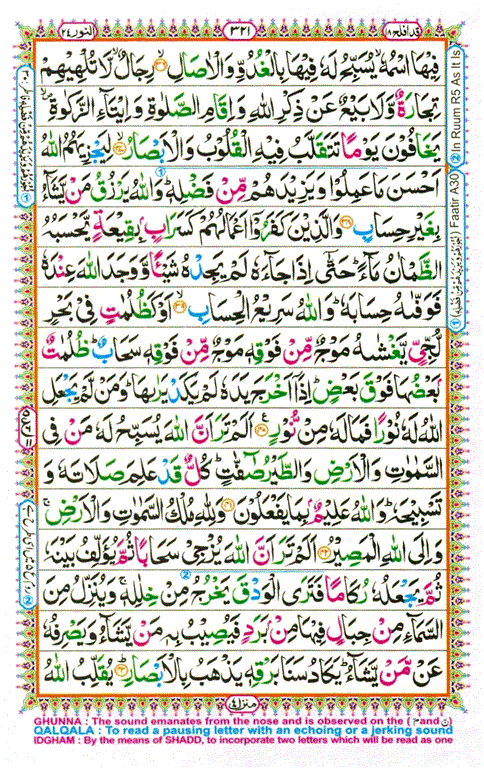 قد افلح ١٨
٣٢١
النور ٢٤
فِيْهَا اسْمُهٗ ۙ يُسَبِّحُ لَهٗ فِيْهَا بِالْغُدُوِّ وَالْاٰصَالِ ۙ‏﴿۳۶﴾ رِجَالٌ ۙ لَّا تُلْهِيْهِمْ
تِجَارَةٌ وَّلَا بَيْعٌ عَنْ ذِكْرِ اللّٰهِ وَاِقَامِ الصَّلٰوةِ وَاِيْتَآءِ الزَّكٰوةِ ۙ
يَخَافُوْنَ يَوْمًا تَتَقَلَّبُ فِيْهِ الْقُلُوْبُ وَالْاَبْصَارُ ۙ‏﴿۳۷﴾ لِيَجْزِيَهُمُ اللّٰهُ
اَحْسَنَ مَا عَمِلُوْا وَيَزِيْدَهُمْ مِّنْ فَضْلِهٖ ؕ وَاللّٰهُ يَرْزُقُ مَنْ يَّشَآءُ
بِغَيْرِ حِسَابٍ ‏﴿۳۸﴾ وَالَّذِيْنَ كَفَرُوْۤا اَعْمَالُهُمْ كَسَرَابٍۭ بِقِيْعَةٍ يَّحْسَبُهُ
الظَّمْاٰنُ مَآءً ؕ حَتّٰۤى اِذَا جَآءَهٗ لَمْ يَجِدْهُ شَيْـًٔا وَّ وَجَدَ اللّٰهَ عِنْدَهٗ
فَوَفّٰىهُ حِسَابَهٗ ؕ وَاللّٰهُ سَرِيْعُ الْحِسَابِ ۙ‏﴿۳۹﴾ اَوْ كَظُلُمٰتٍ فِيْ بَحْرٍ
لُّجِّيٍّ يَّغْشٰىهُ مَوْجٌ مِّنْ فَوْقِهٖ مَوْجٌ مِّنْ فَوْقِهٖ سَحَابٌ ؕ ظُلُمٰتٌۢ
بَعْضُهَا فَوْقَ بَعْضٍ ؕ اِذَاۤ اَخْرَجَ يَدَهٗ لَمْ يَكَدْ يَرٰىهَا ؕ وَمَنْ لَّمْ يَجْعَلِ
اللّٰهُ لَهٗ نُوْرًا فَمَا لَهٗ مِنْ نُّوْرٍ ‏﴿۴۰﴾ اَلَمْ تَرَ اَنَّ اللّٰهَ يُسَبِّحُ لَهٗ مَنْ فِى
السَّمٰوٰتِ وَالْاَرْضِ وَالطَّيْرُ صٰٓفّٰتٍ ؕ كُلٌّ قَدْ عَلِمَ صَلَاتَهٗ وَ
تَسْبِيْحَهٗ ؕ وَاللّٰهُ عَلِيْمٌۢ بِمَا يَفْعَلُوْنَ ‏﴿۴۱﴾ وَلِلّٰهِ مُلْكُ السَّمٰوٰتِ وَالْاَرْضِ ۚ
وَاِلَى اللّٰهِ الْمَصِيْرُ ‏﴿۴۲﴾ اَلَمْ تَرَ اَنَّ اللّٰهَ يُزْجِيْ سَحَابًا ثُمَّ يُؤَلِّفُ بَيْنَهٗ
ثُمَّ يَجْعَلُهٗ رُكَامًا فَتَرَى الْوَدْقَ يَخْرُجُ مِنْ خِلٰلِهٖ ۚ وَيُنَزِّلُ مِنَ
السَّمَآءِ مِنْ جِبَالٍ فِيْهَا مِنْۢ بَرَدٍ فَيُصِيْبُ بِهٖ مَنْ يَّشَآءُ وَيَصْرِفُهٗ
عَنْ مَّنْ يَّشَآءُ ؕ يَكَادُ سَنَا بَرْقِهٖ يَذْهَبُ بِالْاَبْصَارِ ؕ‏﴿۴۳﴾ يُقَلِّبُ اللّٰهُ
منزل ٤
GHUNNA : The sound emanates from the nose and is observed on the ( م and ن)
QALQALA : To read a pausing letter with an echoing or a jerking sound
IDGHAM : By the means of SHADD, to incorporate two letters which will be read as one
② In Ruum R5 As It Is
Faatir A30